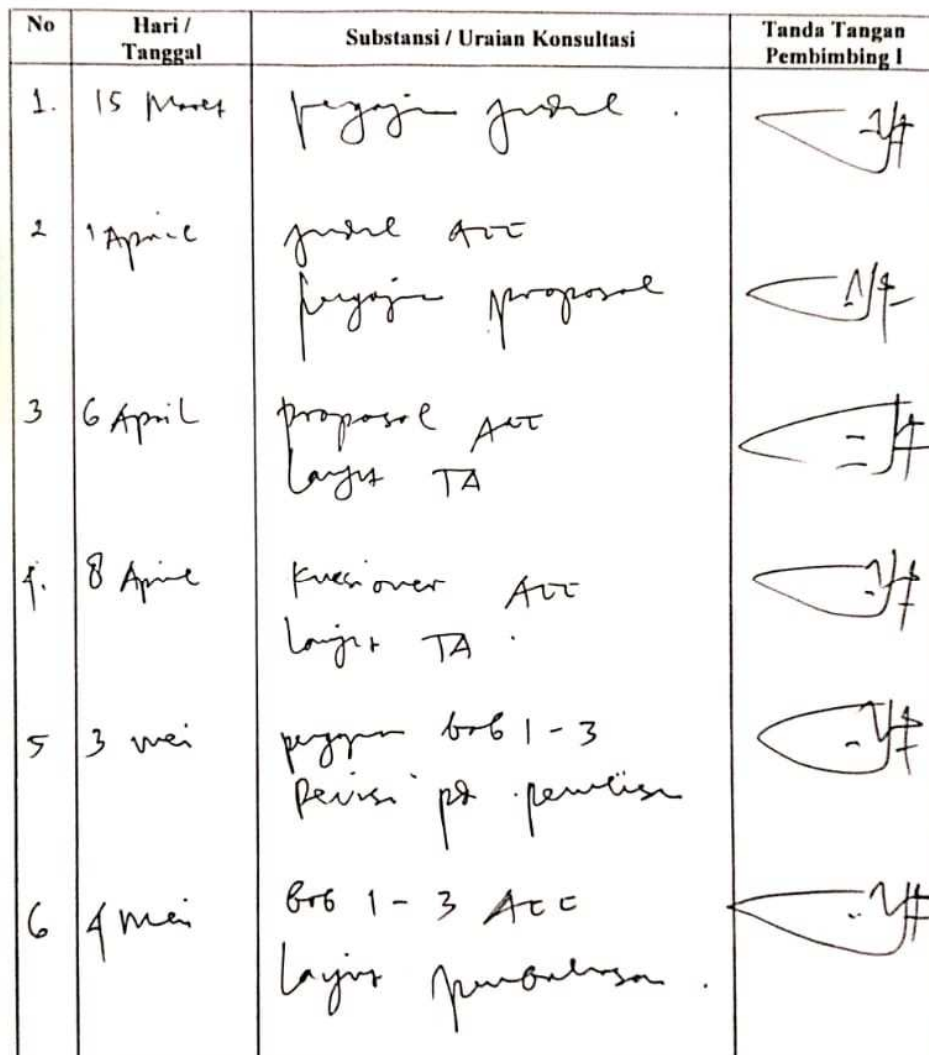 No
Hari /
Tanggal
Substansi / Uraian Konsultasi
Tanda Tangan
Pembimbing I
1. 15 Maret pengajuan judul .
2 1 April judul ACC
pengajuan proposal
3 6 April proposal ACC
Lanjut TA
4. 8 April Kuesioner ACC
Lanjut TA .
5 3 mei pengajuan bab 1 - 3
Revisi pd penulisan
6 4 mei bab 1 - 3 ACC
Lanjut pembahasan .